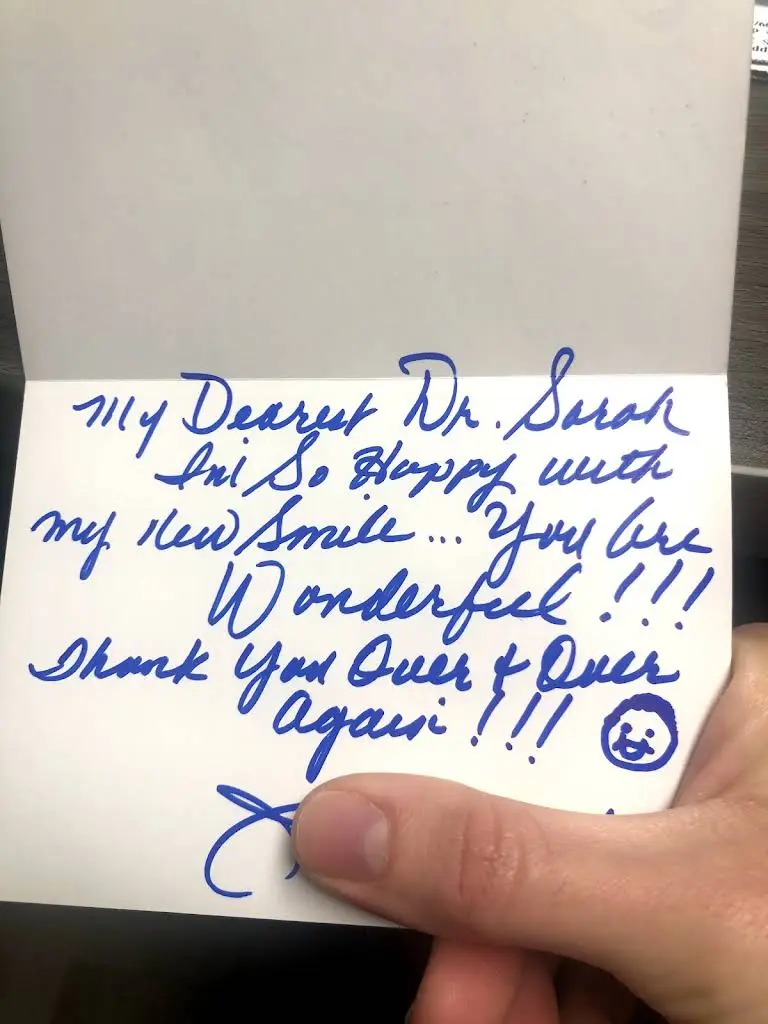 My Dearest Dr. Sarah
I'm So Happy with
my new Smile... You are
Wonderful!!!
Thank You Over & Over
Again!!!